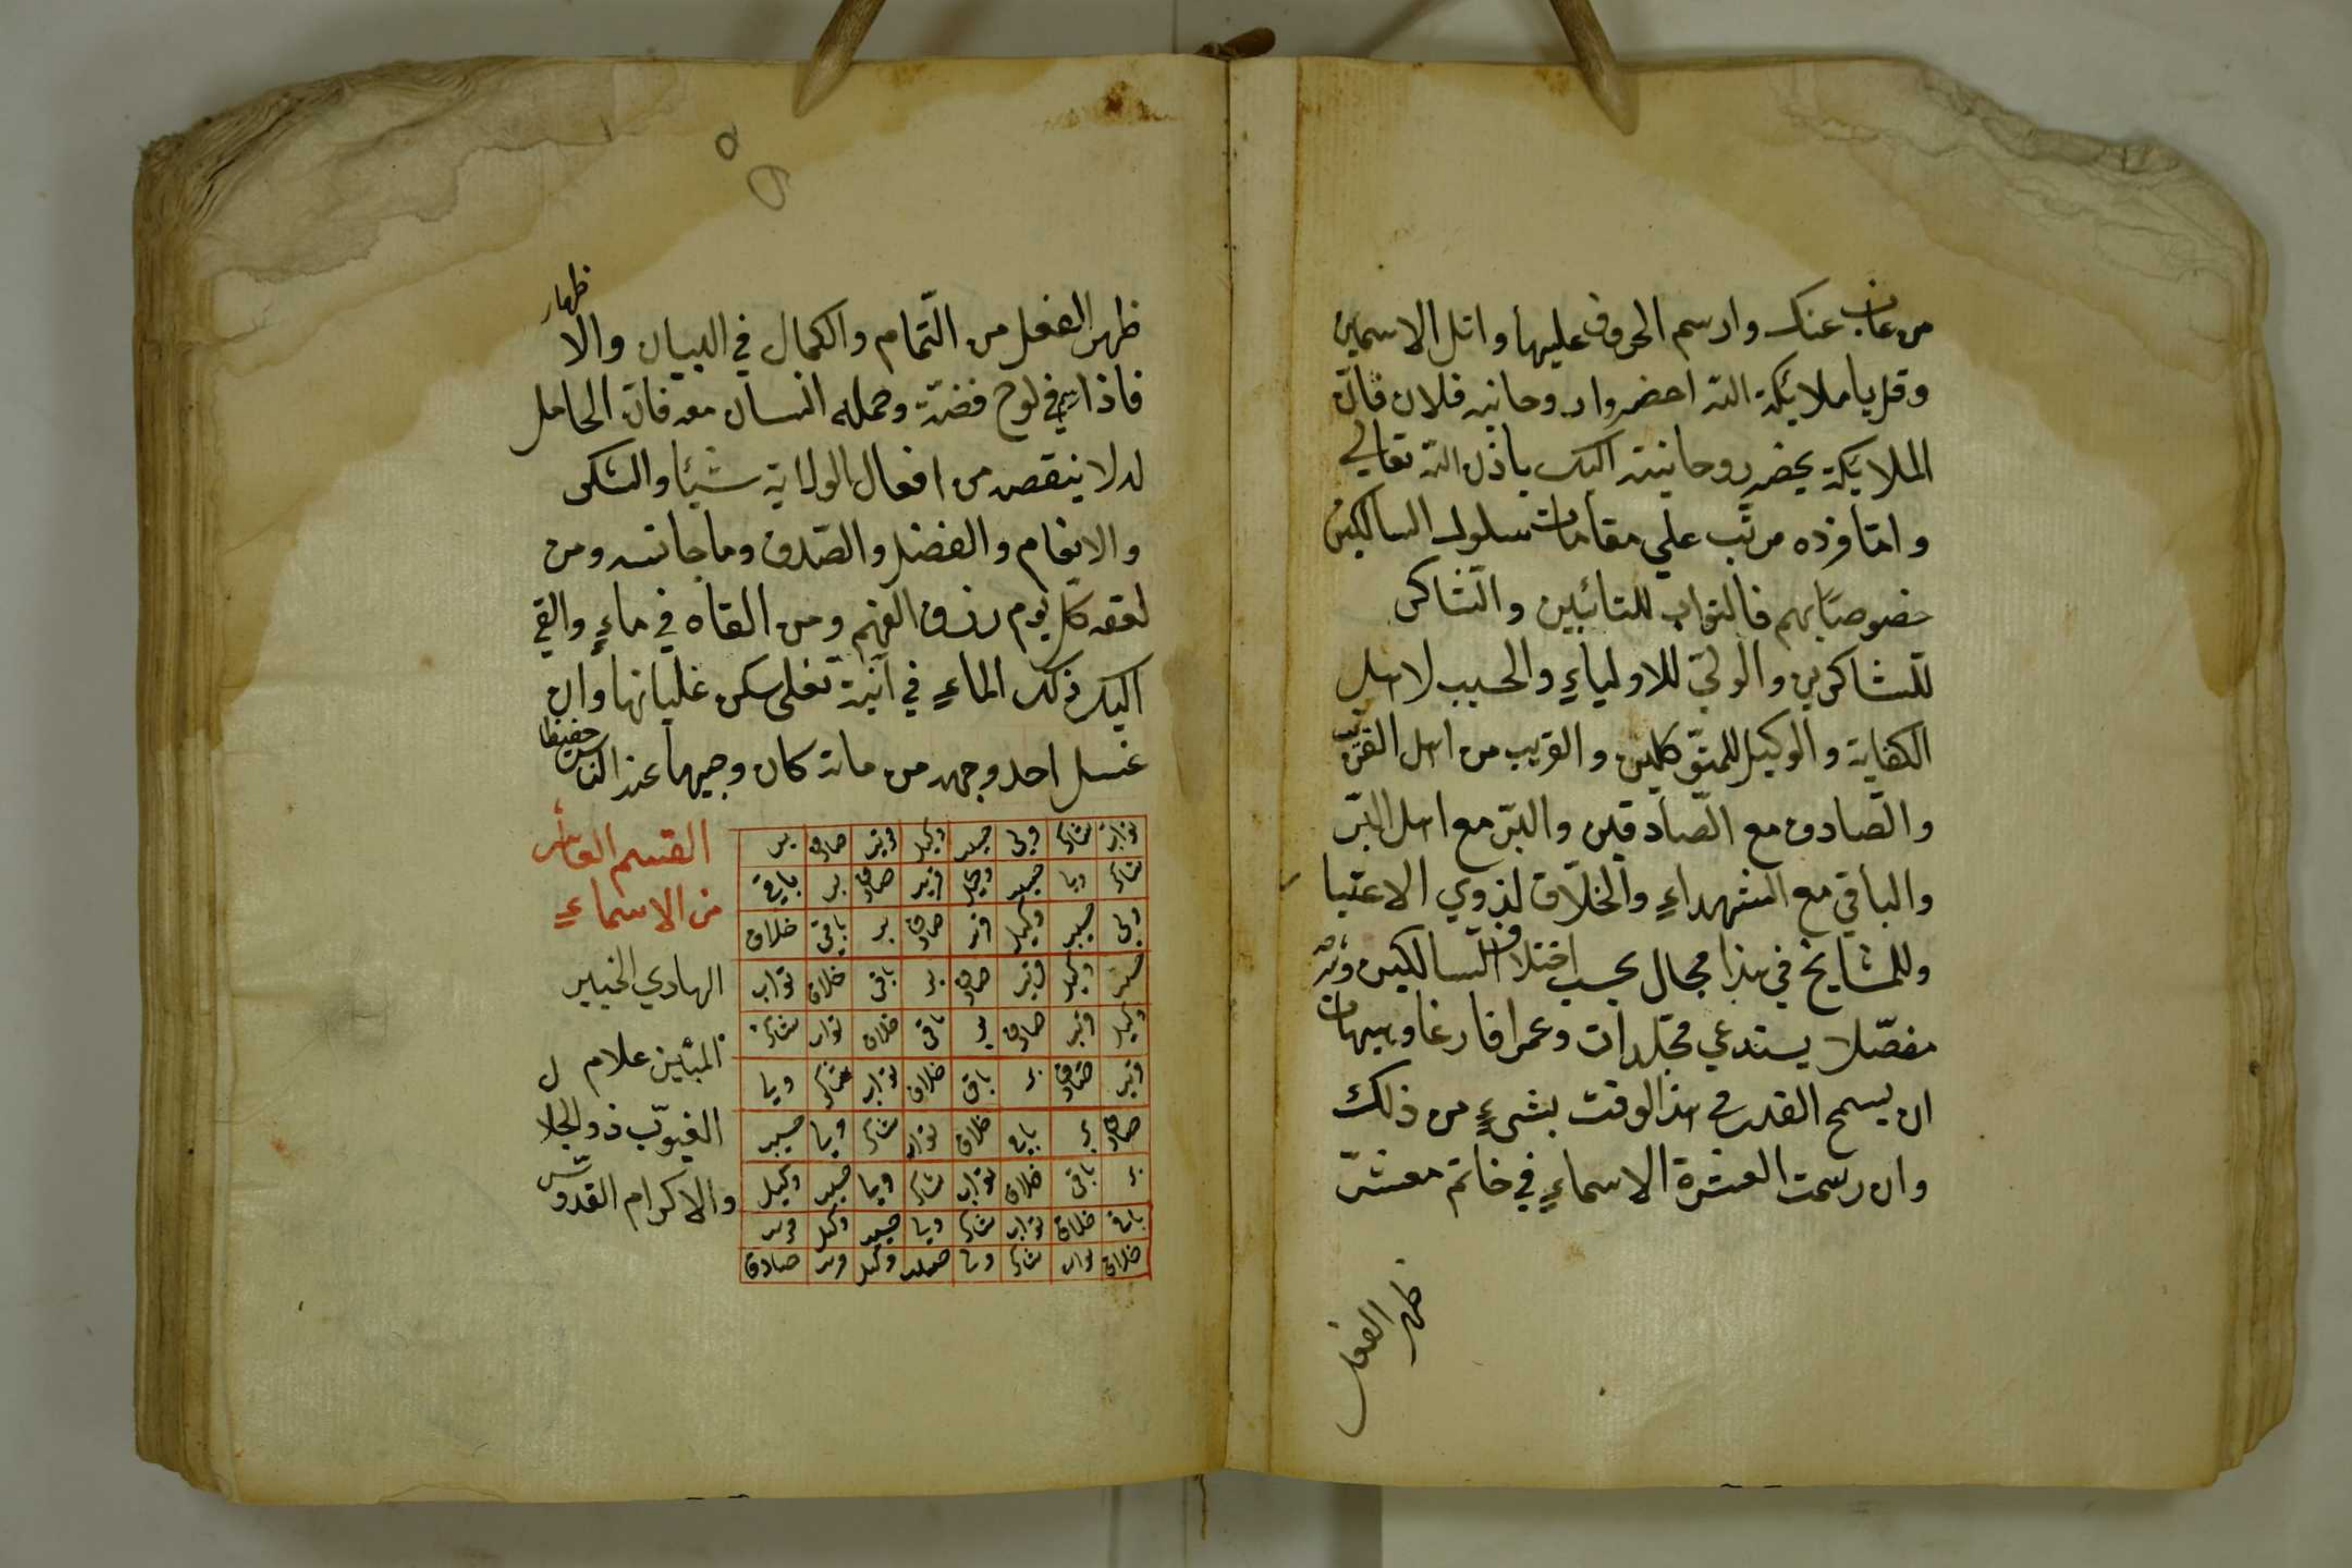 من غاب عنك وارسم الحروف عليها واتل الاسمين
وقل يا ملائكة الله احضروا روحانيه فلان فان
الملائكة يحضر روحانيته اليك باذن الله تعالي
وامّا فرده مرتّب علي مقامات سلوك السالكين
خصوصًا بهم فالتواب للتائبين والشاكر
للشاكرين والولي للاولياءِ والحسيب لاهل
الكفاية والوكيل للمتوكلين والقريب من اهل القرب
والصادق مع الصّادقين والبرّ مع اهل البرّ
والباقي مع الشهداءِ والخلّاق لذوي الاعتبا
وللمشايخ في هذا مجال بحسب اختلاف السالكين وشرحه
مفصّلا يستدعي مجلدات وعمرا فارغا وهيهات
ان يسمح القدر في هذا الوقت بشيءٍ من ذلك
وان رسمت العشرة الاسماءِ في خاتم معشّر
ظهر الفعل
ظهر الفعل من التّمام والكمال في البيان والاظهار
فاذا في لوح فضّة وحمله انسان معه فان الحامل
له لا ينقصه من افعال الولاية شيئا والشكر
والانعام والفضل والصّدق وما جانسه ومن
لعقه كل يوم رزق الفهم ومن القاه في ماءٍ والقي
اليك ذلك الماءِ في آنية تغلي سكن غليانها وان
غسل احد وجهه من مائه كان وجيها عند الناس حفيظا
تواب شاكر ولي حسيب وكيل قريب صادق بر
شاكر وليا حسيب وكيل قريب صادق بر باقي
ولي حسيب وكيل قريب صادق بر باقي خلاق
حسيب وكيل قريب صادق بر باقي خلاق تواب
وكيل قريب صادق بر باقي خلاق تواب شاكر
قريب صادق بر باقي خلاق تواب شاكر وليا
صادق بر باقي خلاق تواب شاكر وليا حسيب
بر باقي خلاق تواب شاكر وليا حسيب وكيل
باقي خلاق تواب شاكر وليا حسيب وكيل قريب
خلاق تواب شاكر وليا حسيب وكيل قريب صادق
القسم العاشر
من الاسماءِ
الهادي الخبير
المبين علام
الغيوب ذو الجلال
والاكرام القدوس